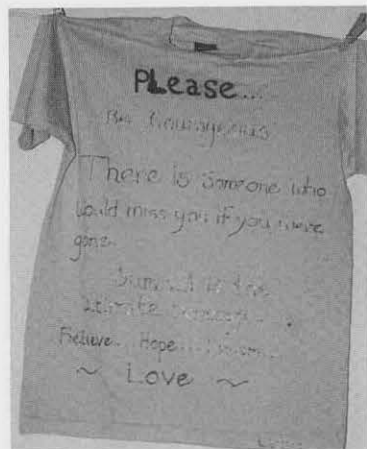 PLease...
Be Courageous
There is someone who
would miss you if you were
gone.
is the
Believe... Hope...
~ Love ~